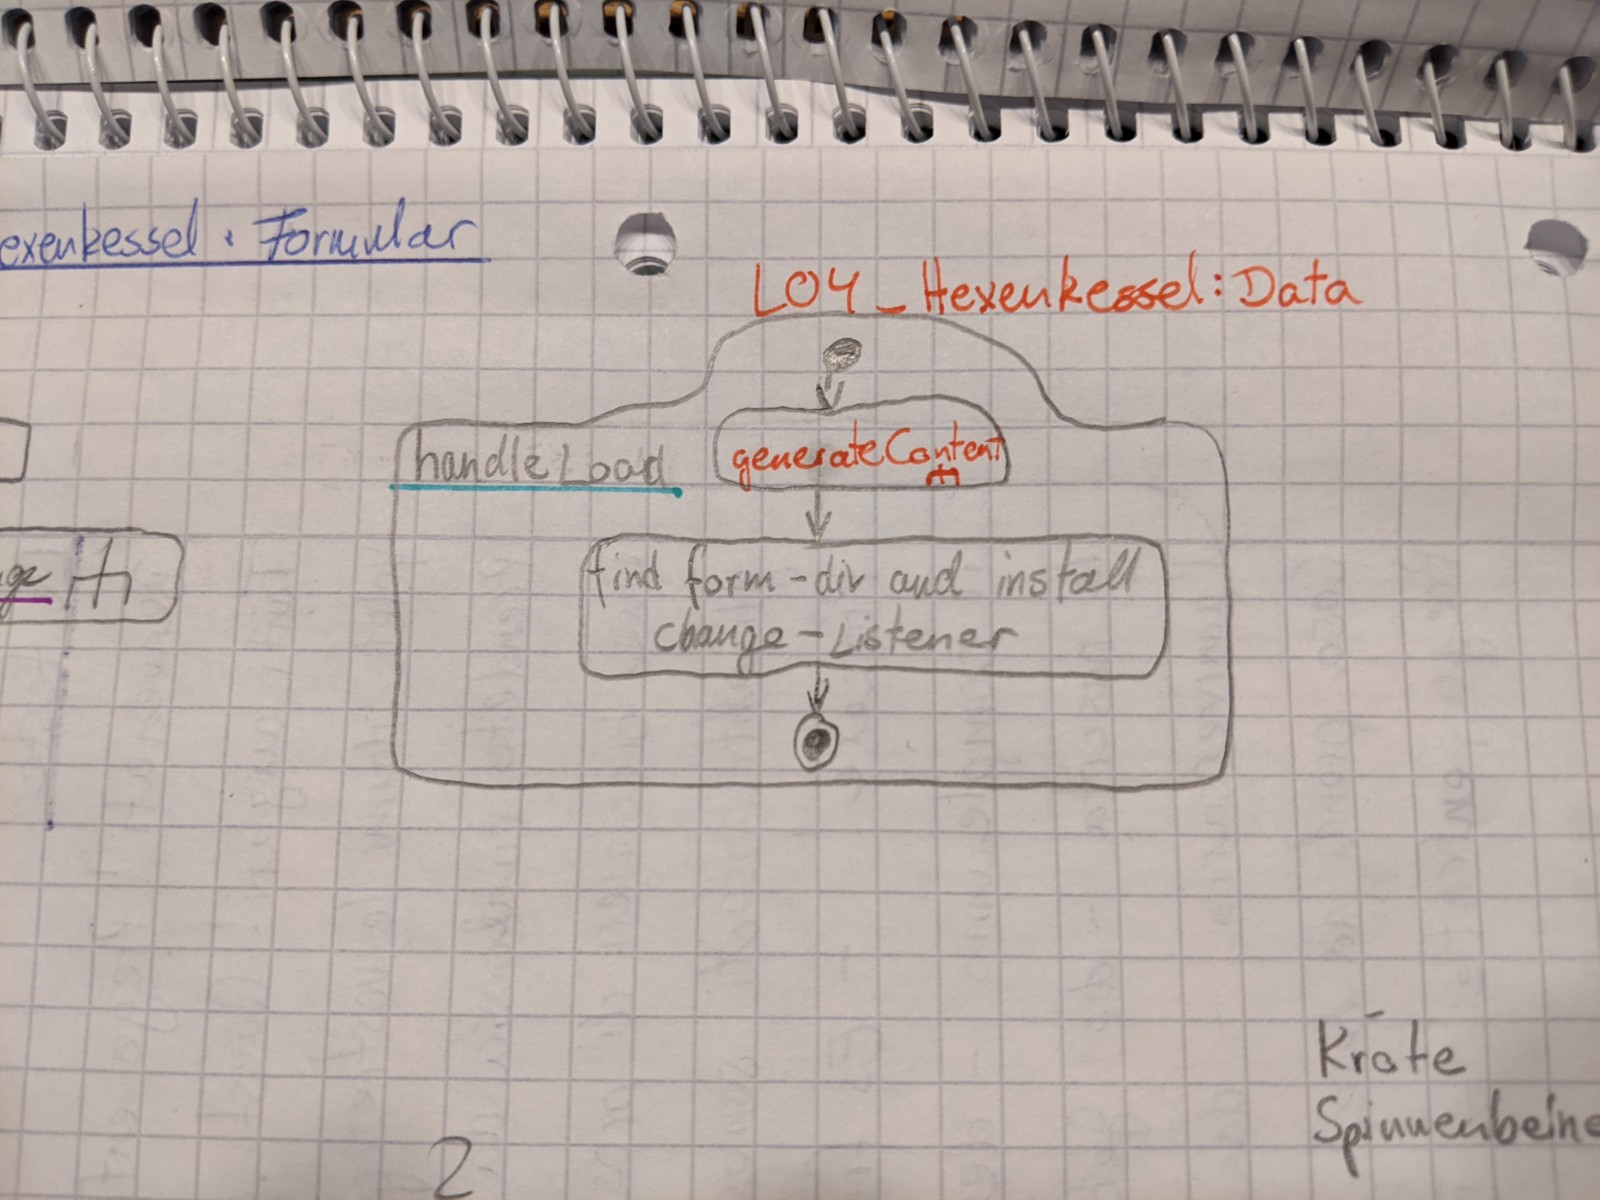 exenkessel: Formular
L04_Hexenkessel: Data
handleLoad
generateContent
find form-div and install
change-Listener
Kröte
Spinnenbeine
2